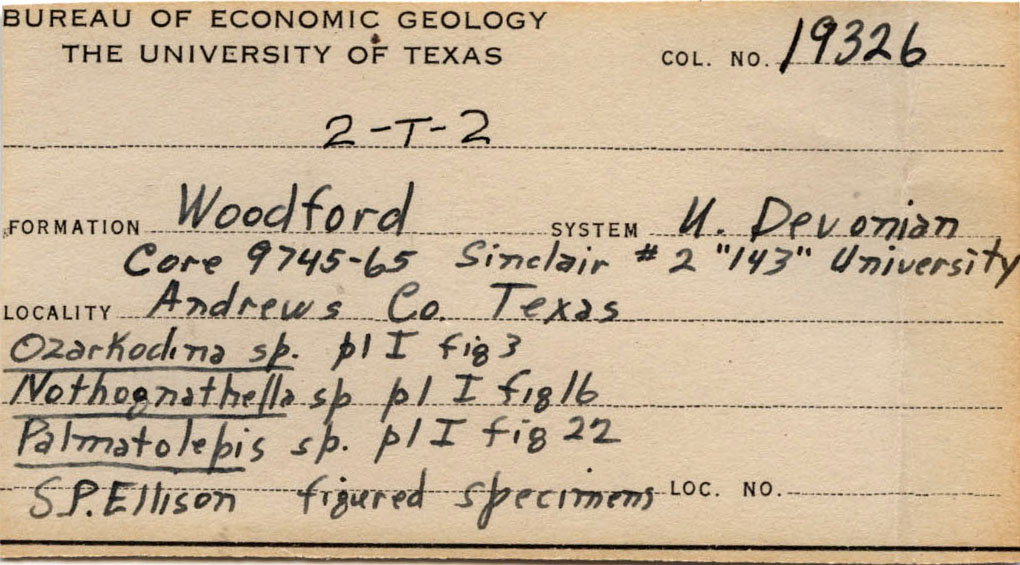 BUREAU OF ECONOMIC GEOLOGY
THE UNIVERSITY OF TEXAS
COL. NO. 19326
2-T-2
FORMATION Woodford SYSTEM U. Devonian
Core 9745-65 Sinclair # 2 "143" University
LOCALITY Andrews Co. Texas
Ozarkodina sp. pl I fig 3
Nothognathella sp pl I fig 16
Palmatolepis sp. pl I fig 22
S.P. Ellison figured specimens LOC. NO.